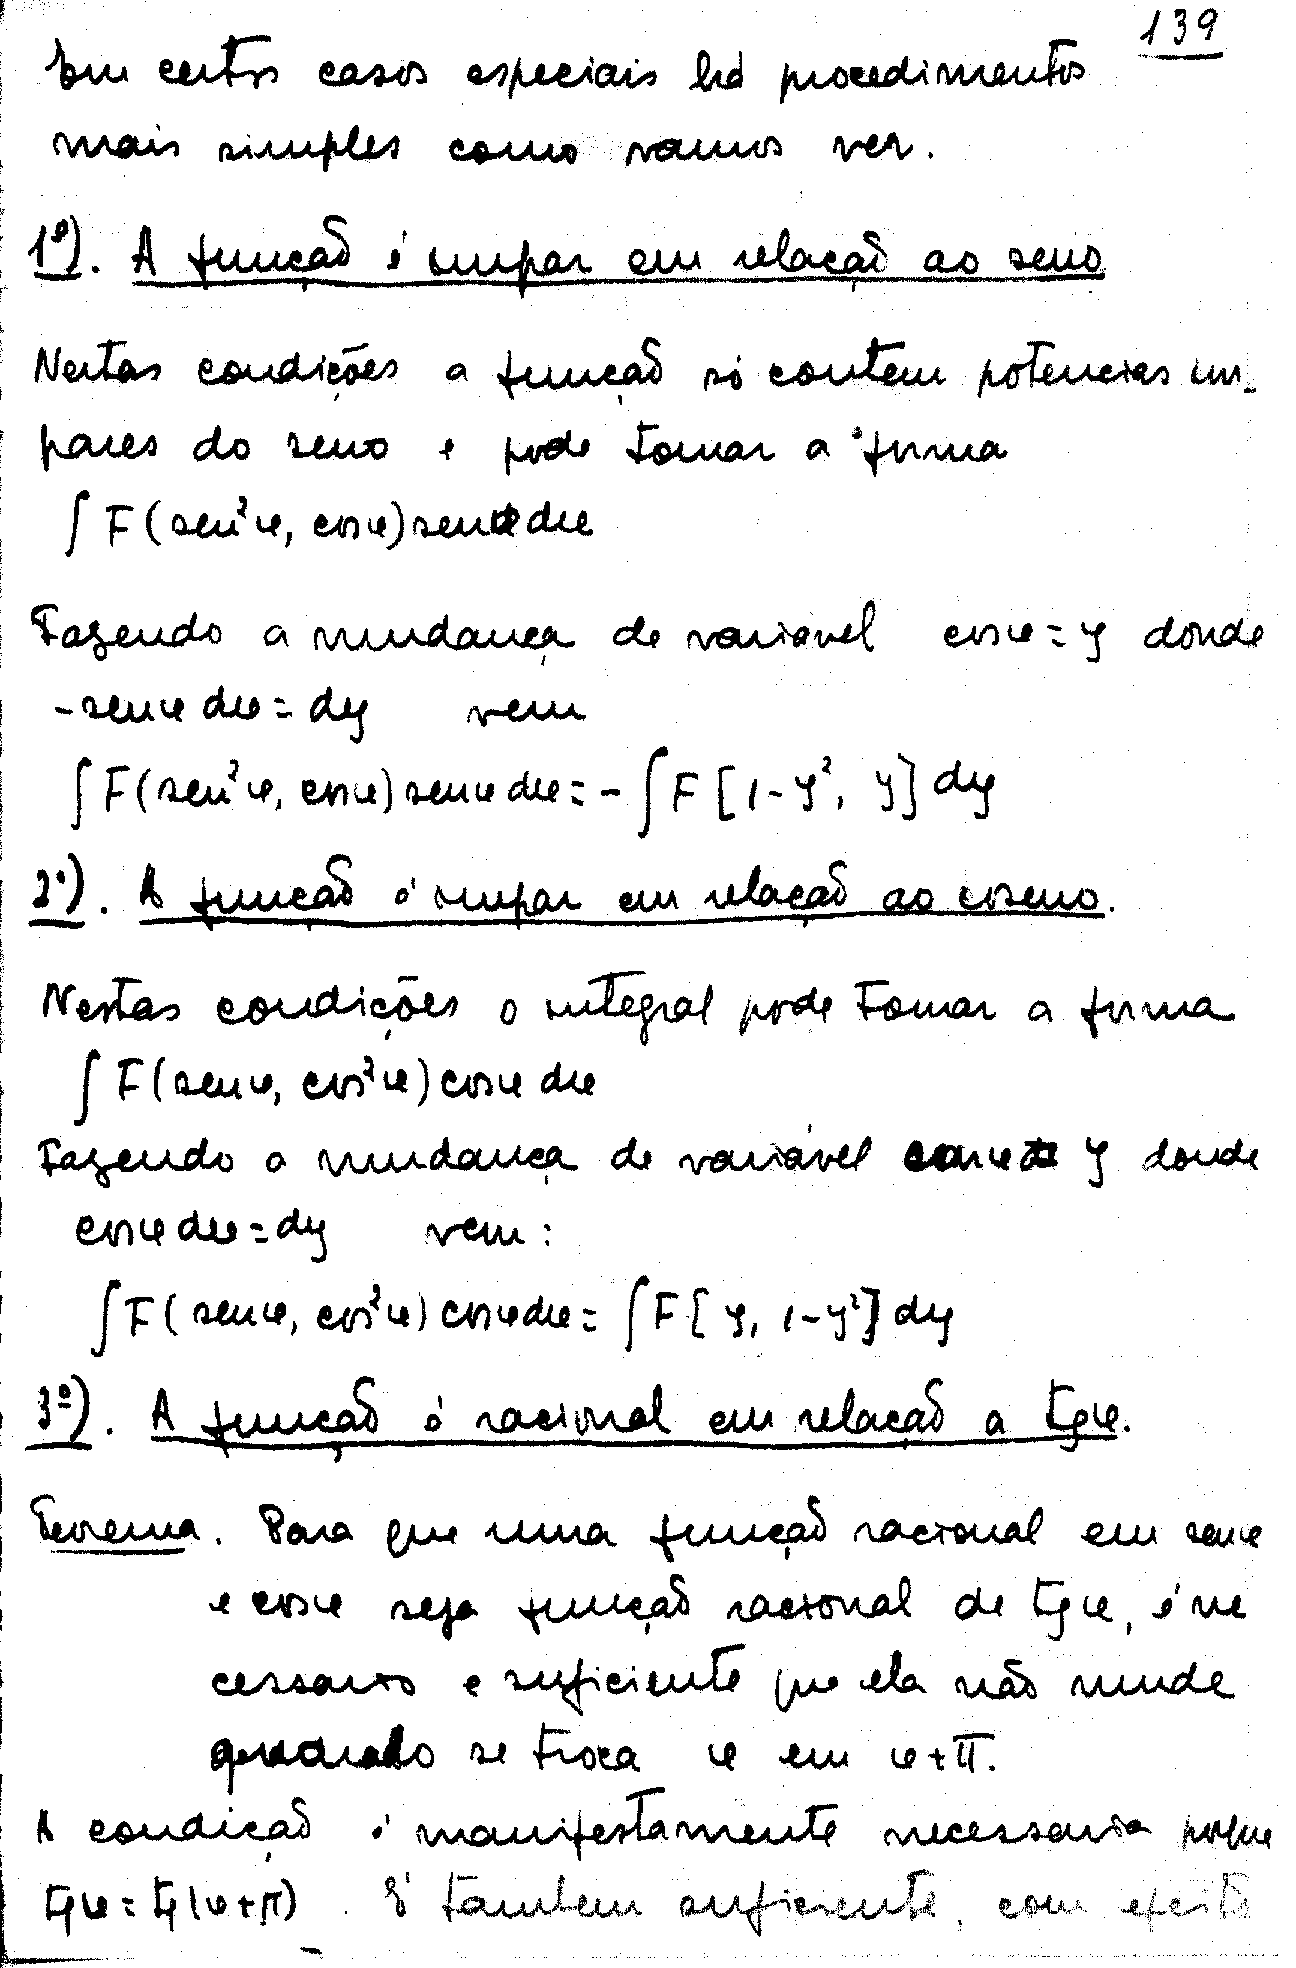 139
Em certos casos especiais há procedimentos
mais simples como vamos ver.
1º). A função é impar em relação ao seno
Nestas condições a função só contem potencias im-
pares do seno e pode tomar a forma
∫ F(sen²φ, cosφ) senφ dφ
Fazendo a mudança de variavel cosφ = y donde
-senφ dφ = dy vem
∫ F(sen²φ, cosφ) senφ dφ = - ∫ F [1-y², y] dy
2º). A função é impar em relação ao coseno.
Nestas condições o integral pode tomar a forma
∫ F(senφ, cos²φ) cosφ dφ
Fazendo a mudança de variável y donde
cosφ dφ = dy vem:
∫ F(senφ, cos²φ) cosφ dφ = ∫ F [y, 1-y²] dy
3º). A função é racional em relação a tgφ.
Teorema. Para que uma função racional em senφ
e cosφ seja função racional de tgφ, é ne
cessario e suficiente que ela não mude
quando se troca φ em φ+π.
A condição é manifestamente necessaria porque
tgφ = tg(φ+π). É tambem suficiente, com efeito